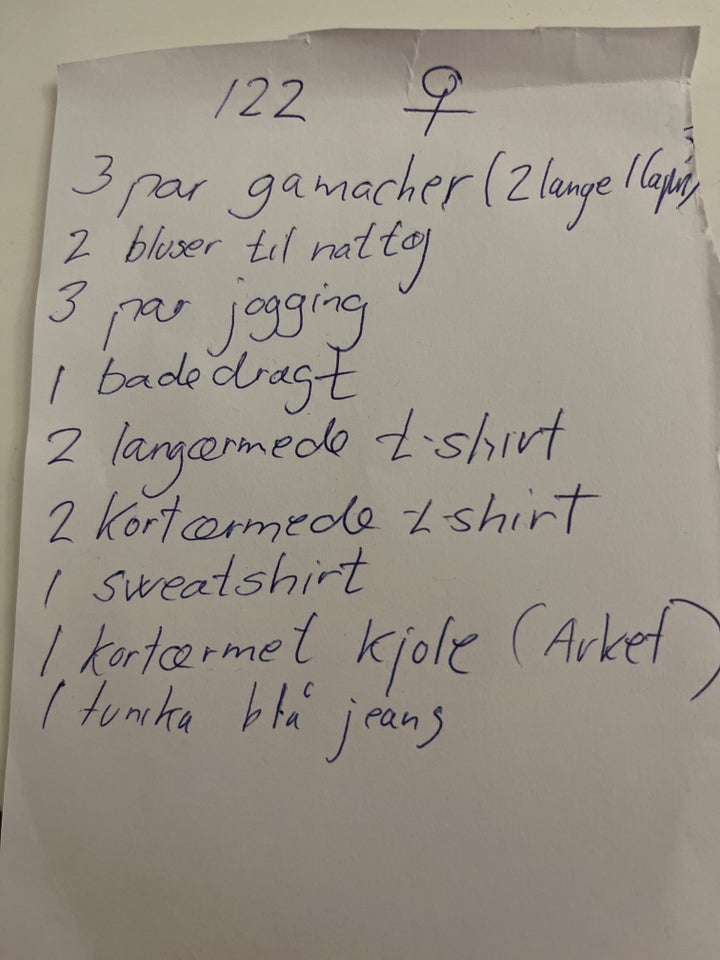 122 ♀
3 par gamacher (2 lange 1 Capri)
2 bluser til nattøj
3 par jogging
1 badedragt
2 langærmede t-shirt
2 kortærmede t-shirt
1 sweatshirt
1 kortærmet kjole (Arket)
1 tunika blå jeans